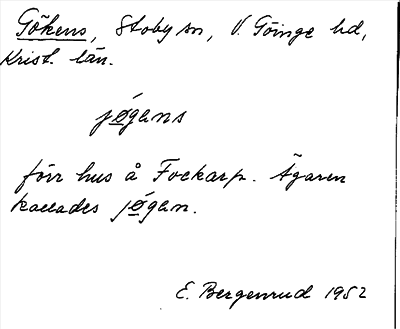 Gökens, Stoby sn, V. Göinge hd,
Krist. län.
jǿgans
förr hus å Fockarp. Ägaren
kallades jǿgan.
E. Bergenrud 1952